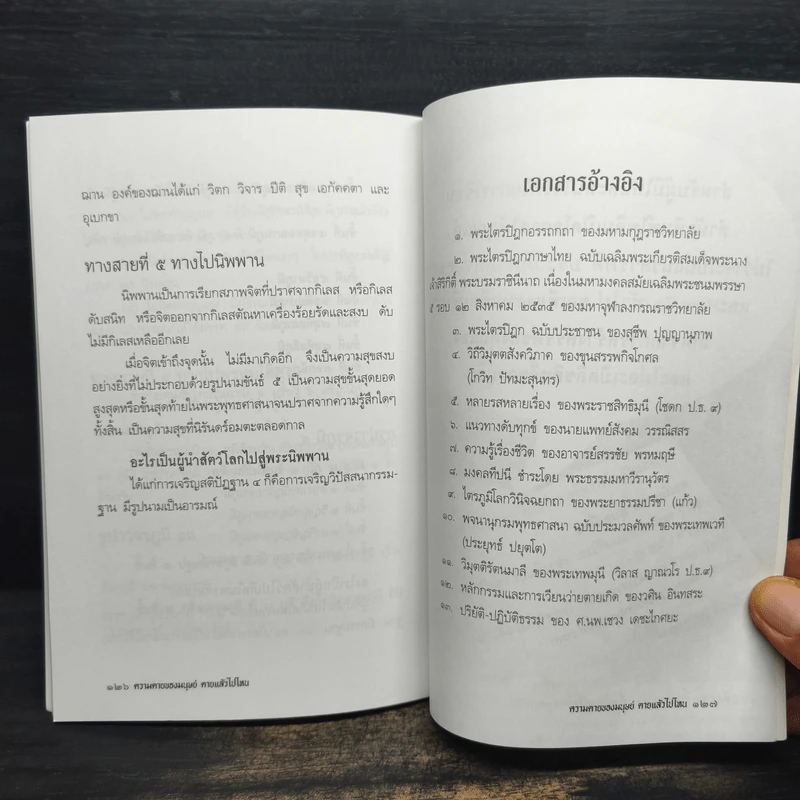 ฌาน องค์ของฌานได้แก่ วิตก วิจาร ปีติ สุข เอกัคคตา และ
อุเบกขา
ทางสายที่ ๕ ทางไปนิพพาน
นิพพานเป็นการเรียกสภาพจิตที่ปราศจากกิเลส หรือกิเลส
ดับสนิท หรือจิตออกจากกิเลสตัณหาเครื่องร้อยรัดและสงบ ดับ
ไม่มีกิเลสเหลืออีกเลย
เมื่อจิตเข้าถึงจุดนั้น ไม่มีมาเกิดอีก จึงเป็นความสุขสงบ
อย่างยิ่งที่ไม่ประกอบด้วยรูปนามขันธ์ ๕ เป็นความสุขขั้นสุดยอด
สูงสุดหรือขั้นสุดท้ายในพระพุทธศาสนาจนปราศจากความรู้สึกใดๆ
ทั้งสิ้น เป็นความสุขที่นิรันดร์อมตะตลอดกาล
อะไรเป็นผู้นำสัตว์โลกไปสู่พระนิพพาน
ได้แก่การเจริญสติปัฏฐาน ๔ ก็คือการเจริญวิปัสสนากรรม-
ฐาน มีรูปนามเป็นอารมณ์
๑๒๖ ความตายของมนุษย์ ตายแล้วไปไหน
เอกสารอ้างอิง
๑. พระไตรปิฎกอรรถกถา ของมหามกุฎราชวิทยาลัย
๒. พระไตรปิฎกภาษาไทย ฉบับเฉลิมพระเกียรติสมเด็จพระนาง
เจ้าสิริกิติ์ พระบรมราชินีนาถ เนื่องในมหามงคลสมัยเฉลิมพระชนมพรรษา
๕ รอบ ๑๒ สิงหาคม ๒๕๓๕ ของมหาจุฬาลงกรณราชวิทยาลัย
๓. พระไตรปิฎก ฉบับประชาชน ของสุชีพ ปุญญานุภาพ
๔. วิถีวิมุตตสังควิภาค ของขุนสรรพกิจโกศล
(โกวิท ปัทมะสุนทร)
๕. หลายรสหลายเรื่อง ของพระราชสิทธิมุนี (โชดก ป.ธ. ๙)
๖. แนวทางดับทุกข์ ของนายแพทย์สังคม วรรณิสสร
๗. ความรู้เรื่องชีวิต ของอาจารย์สรรชัย พรหมฤษี
๘. มงคลทีปนี ชำระโดย พระธรรมมหาวีรานุวัตร
๙. ไตรภูมิโลกวินิจฉยกถา ของพระยาธรรมปรีชา (แก้ว)
๑๐. พจนานุกรมพุทธศาสนา ฉบับประมวลศัพท์ ของพระเทพเวที
(ประยุทธ์ ปยุตโต)
๑๑. วิมุตติรัตนมาลี ของพระเทพมุนี (วิลาส ญาณวโร ป.ธ.๙)
๑๒. หลักกรรมและการเวียนว่ายตายเกิด ของวศิน อินทสระ
๑๓. ปริยัติ-ปฏิบัติธรรม ของ ศ.นพ.เชวง เดชะไกศยะ
ความตายของมนุษย์ ตายแล้วไปไหน ๑๒๗